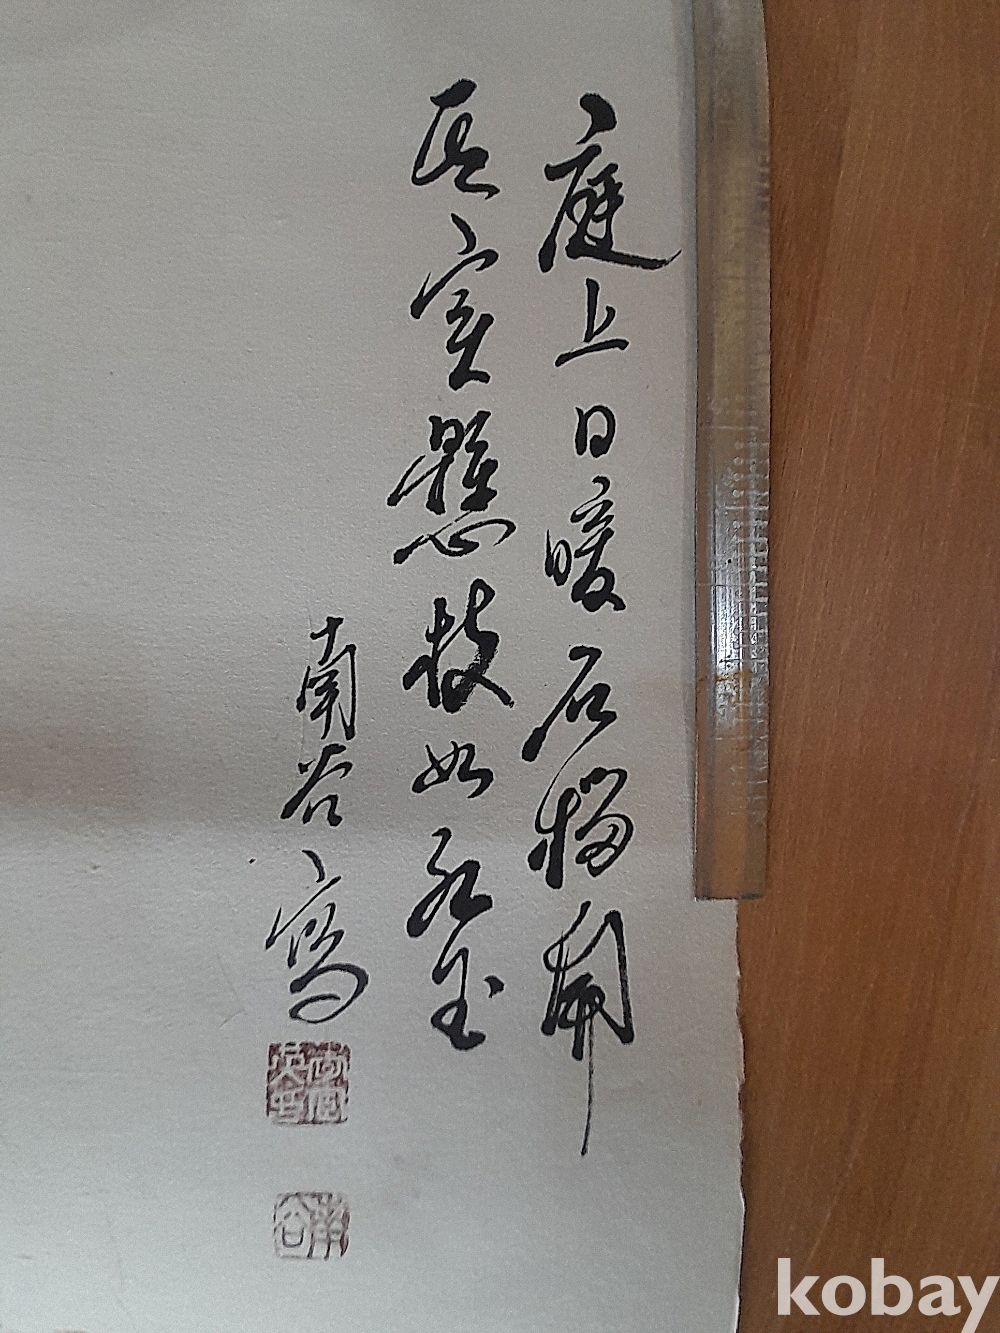 庭上日暖石榴開
巨實懸枝如紅玉
南谷寫
南谷
kobay